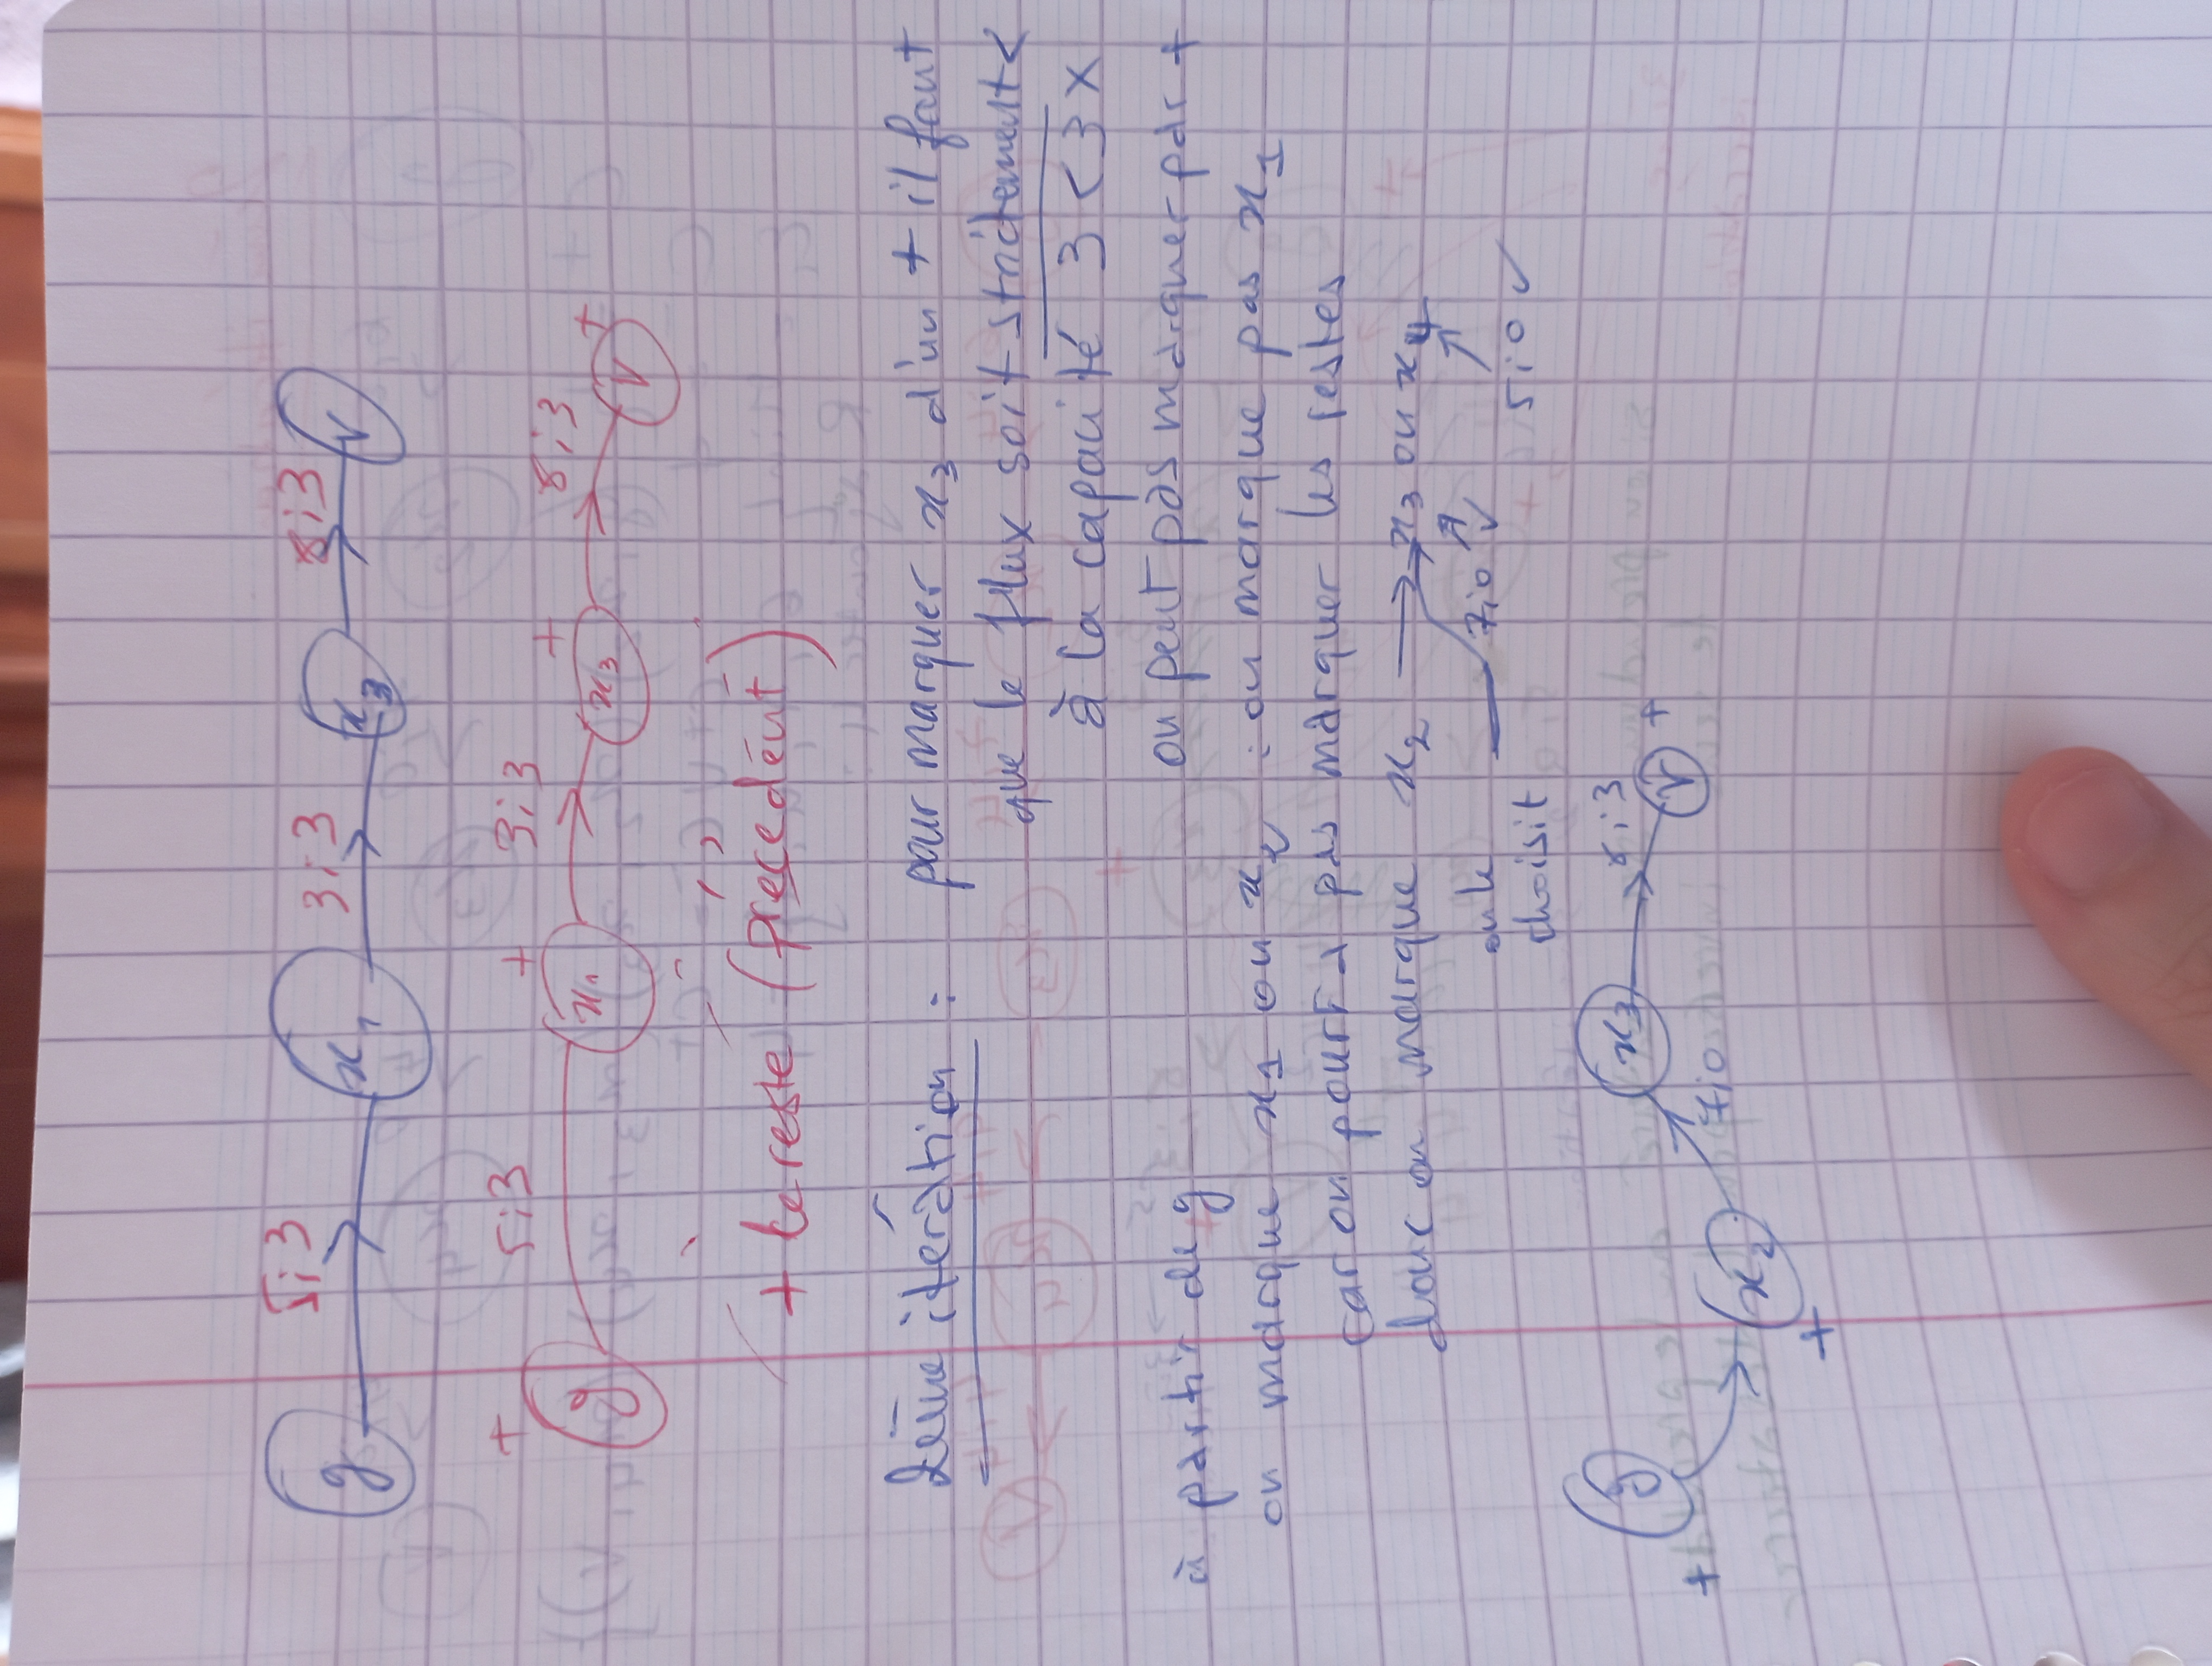 g 5;3 x1 3;3 x3 8;3 v
+ g 5;3 + x1 3;3 + x3 8;3 + v
+ le reste (précédent)
2ème itération : pour marquer x3 d'un + il faut
que le flux soit strictement <
à la capacité 3 < 3 X
on peut pas marquer par +
à partir de g
on marque x1 ou x2 : on marque pas x1
car on pourra pas marquer les restes
donc on marque x2 → x3 ou x4
on le 7;0 ✓
choisit 5;0 ✓
g x3 8;3 v +
+ x2 7;0
+